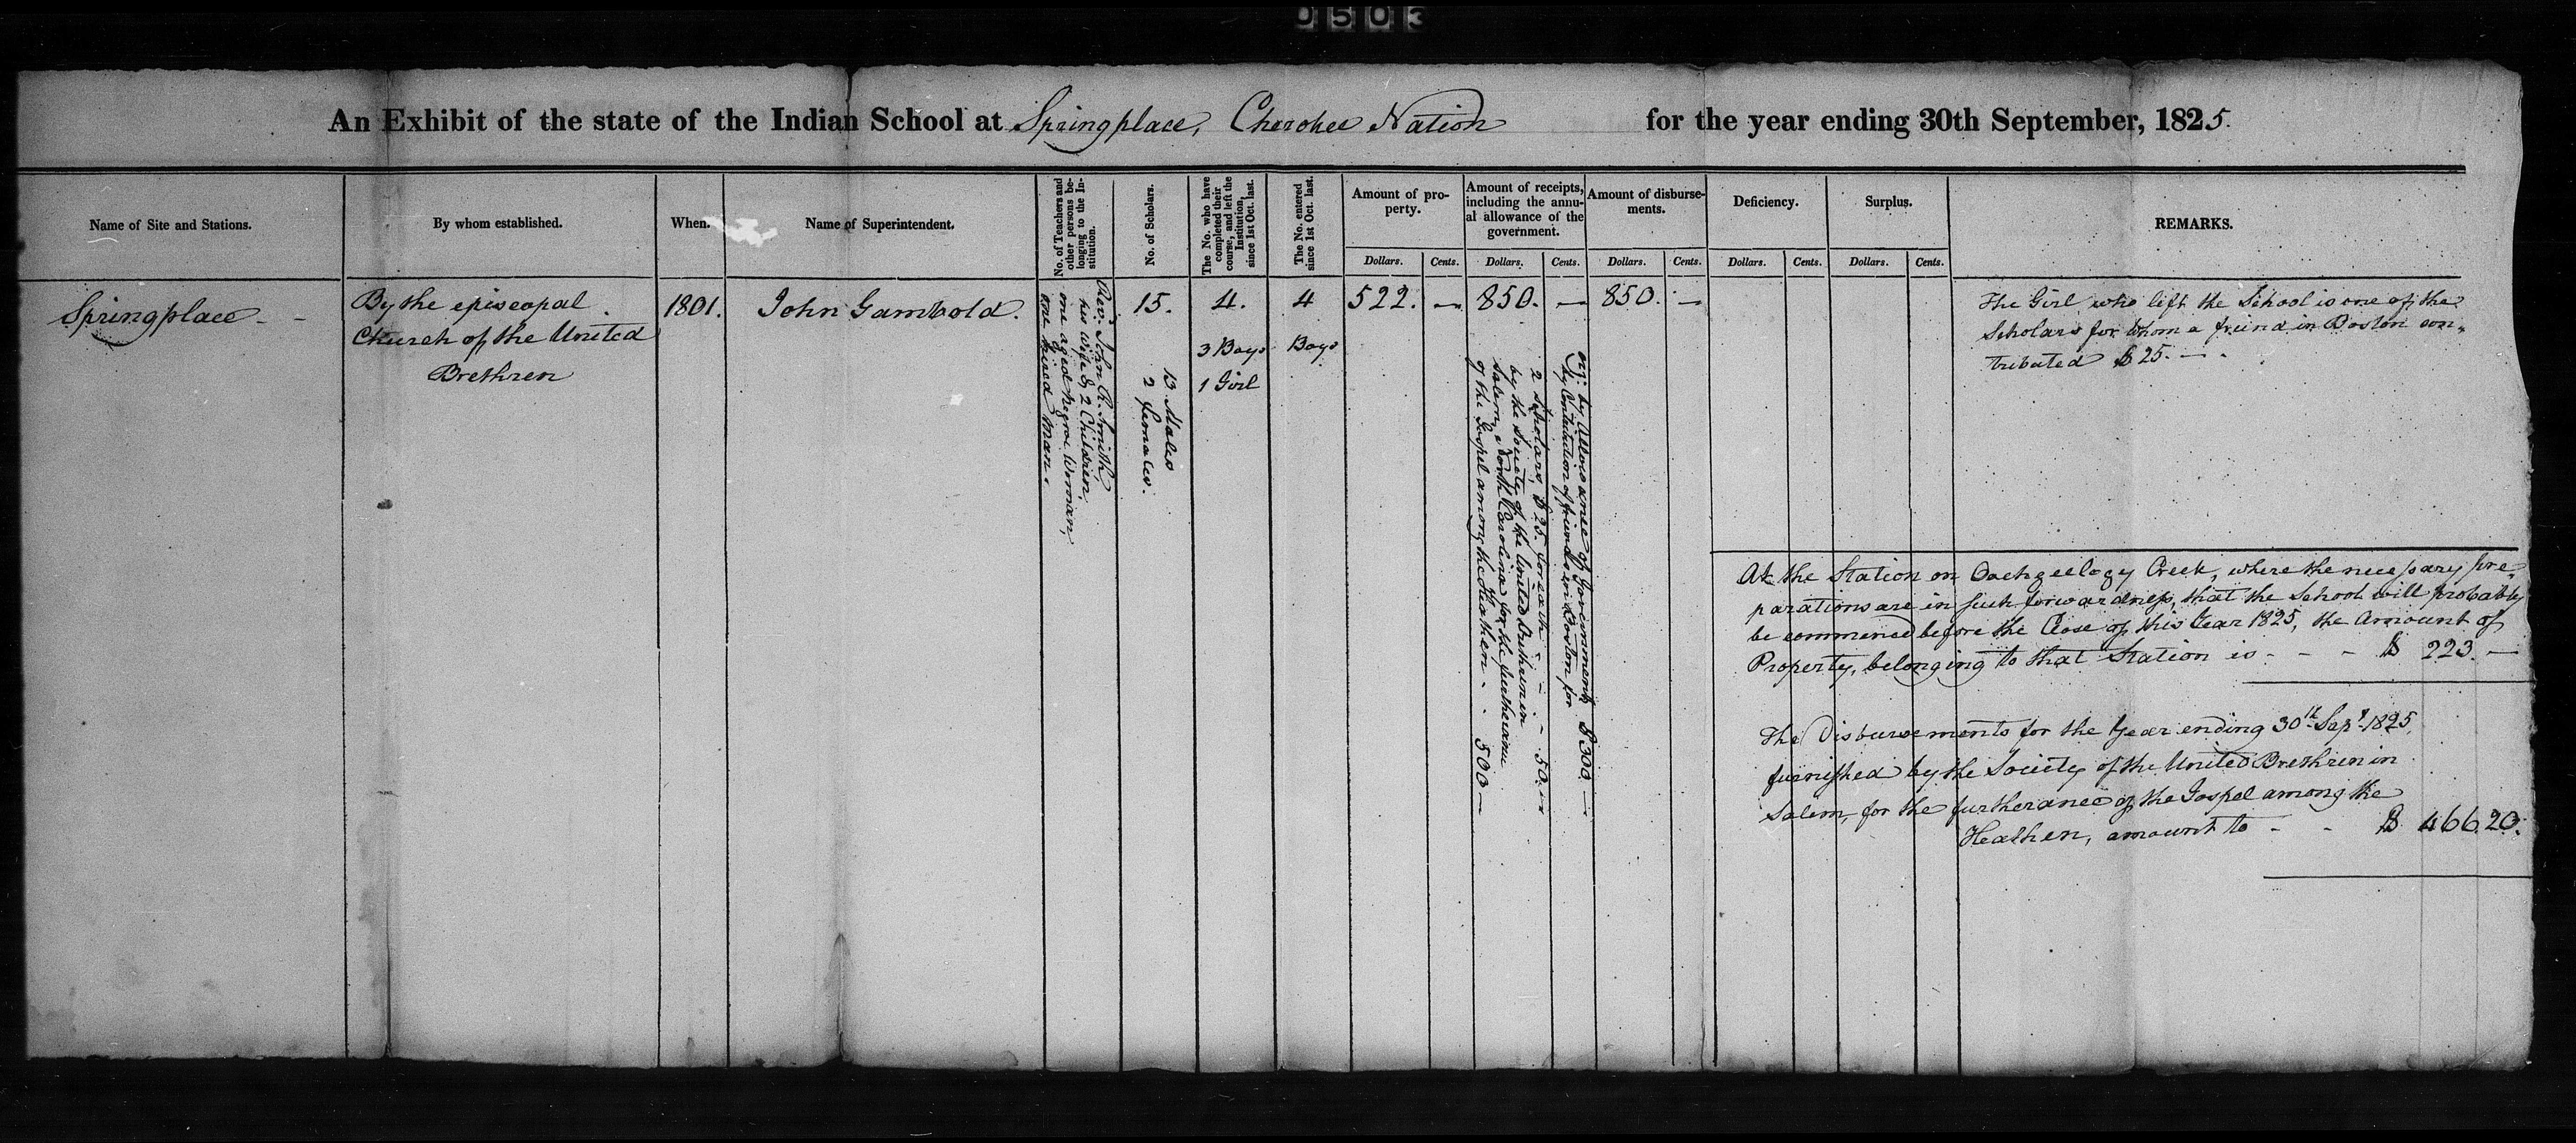 0503
An Exhibit of the state of the Indian School at Springplace, Cherokee Nation for the year ending 30th September, 1825.
Name of Site and Stations.
By whom established.
When.
Name of Superintendent.
No. of Teachers and
other persons be-
longing to the In-
stitution.
No. of Scholars.
The No. who have
completed their
course, and left the
Institution,
since 1st Oct. last.
The No. entered
since 1st Oct. last.
Amount of pro-
perty.
Amount of receipts,
including the annu-
al allowance of the
government.
Amount of disburse-
ments.
Deficiency.
Surplus.
REMARKS.
Dollars. Cents. Dollars. Cents. Dollars. Cents. Dollars. Cents. Dollars. Cents.
Springplace - -
By the episcopal
Church of the United
Brethren
1801.
John Gambold.
Rev: John R. Smith,
his wife & 2 Children,
one aged Negroe Woman,
one hired Man.
15.
13 Males
2 Females.
4.
3 Boys
1 Girl
4
Boys
522. —
850. —
viz: by Allowance of Government $ 300 —
by Contribution of friends in Boston for
2 Scholars, $ 25. for each - - - 50 "
by the Society of the United Brethren in
Salem, North Carolina for the furtherance
of the Gospel among the Heathen - - 500 —
850. —
The Girl, who left the School is one of the
Scholars for whom a freind in Boston con-
tributed $ 25. —
At the Station on Oochgeelogy Creek, where the necessary pre-
parations are in such forwardness, that the School will probably
be commenced before the Close of this Year 1825, the Amount of
Property, belonging to that Station is - - - $ 223. —
The Disbursements for the Year ending 30th Sept. 1825,
furnished by the Society of the United Brethren in
Salem, for the furtherance of the Gospel among the
Heathen, amount to - - $ 466 20.